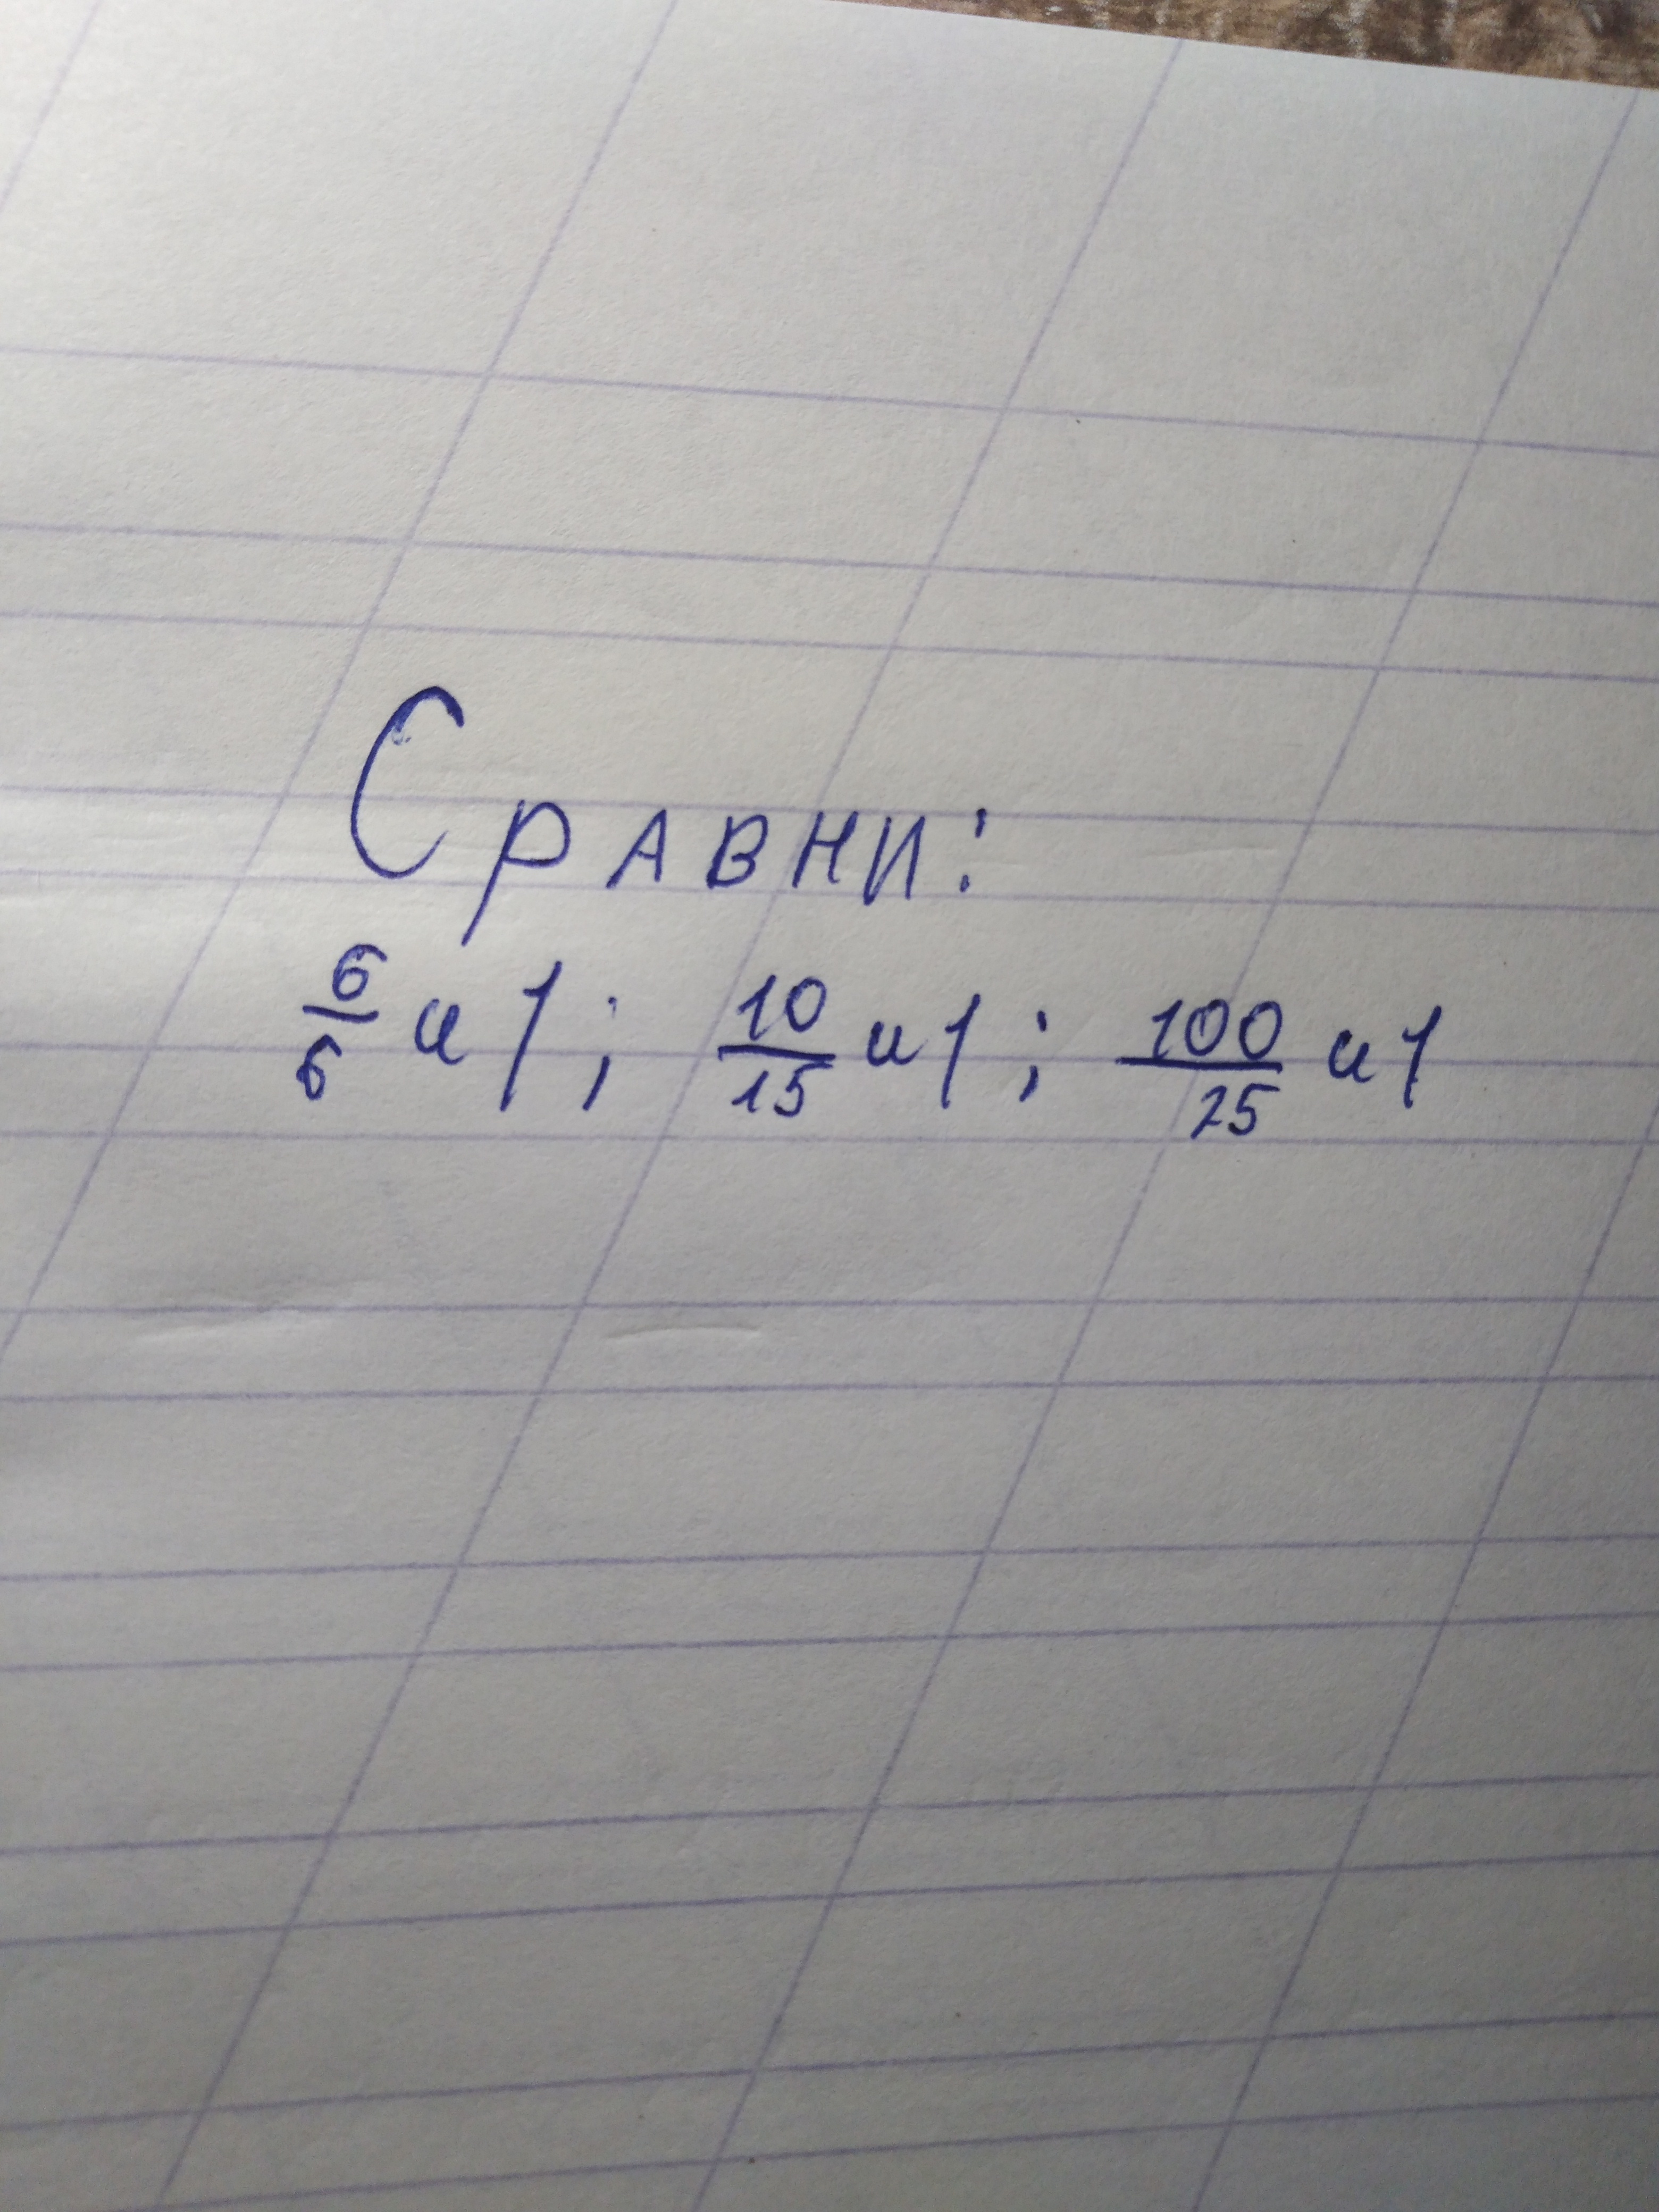 Сравни:
6/6 и 1; 10/15 и 1; 100/25 и 1